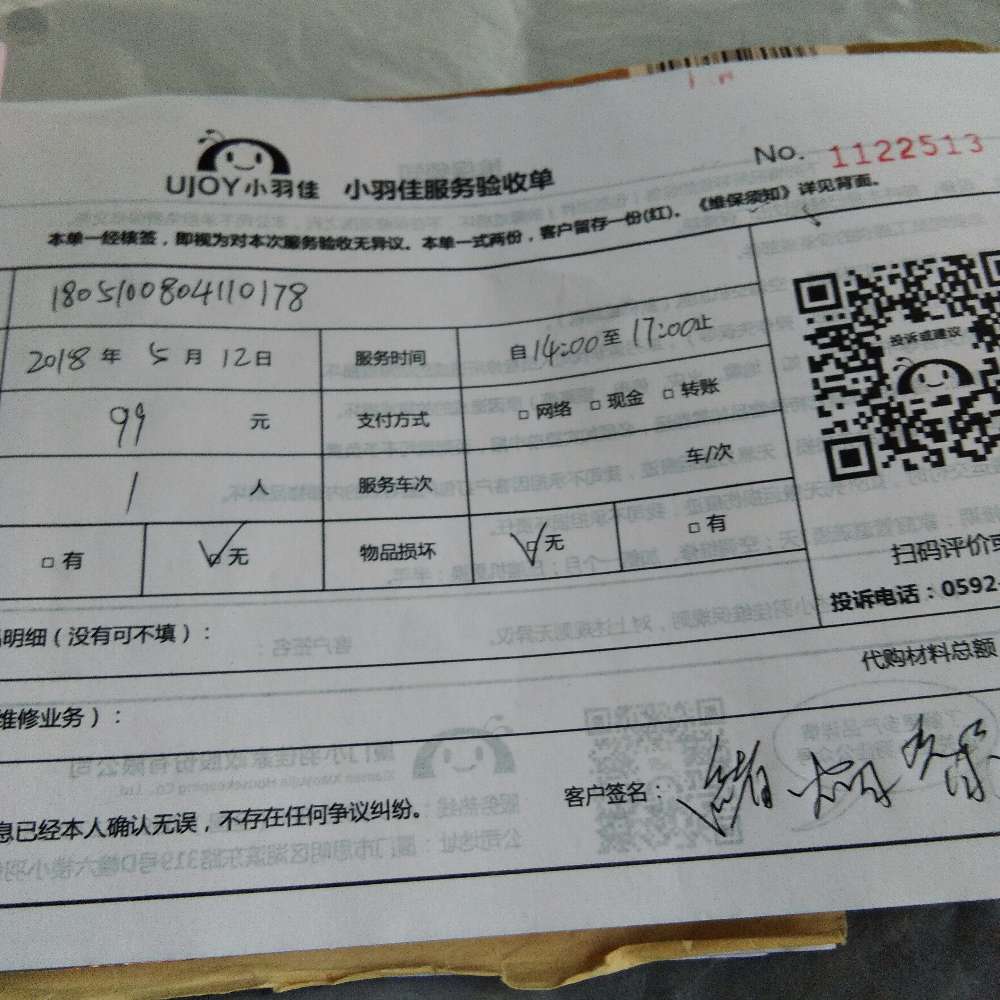 UJOY小羽佳 小羽佳服务验收单 No. 1122513
本单一经核签，即视为对本次服务验收无异议。本单一式两份，客户留存一份(红)。《维保须知》详见背面。
1805100804110178
2018 年 5 月 12 日 服务时间 自 14:00 至 17:00 止
99 元 支付方式 □ 网络 □ 现金 □ 转账
1 人 服务车次 车/次
□ 有 □ 无 物品损坏 □ 无 □ 有
投诉或建议
扫码评价或
投诉电话：0592-
明细（没有可不填）：
代购材料总额
维修业务）：
息已经本人确认无误，不存在任何争议纠纷。
客户签名：